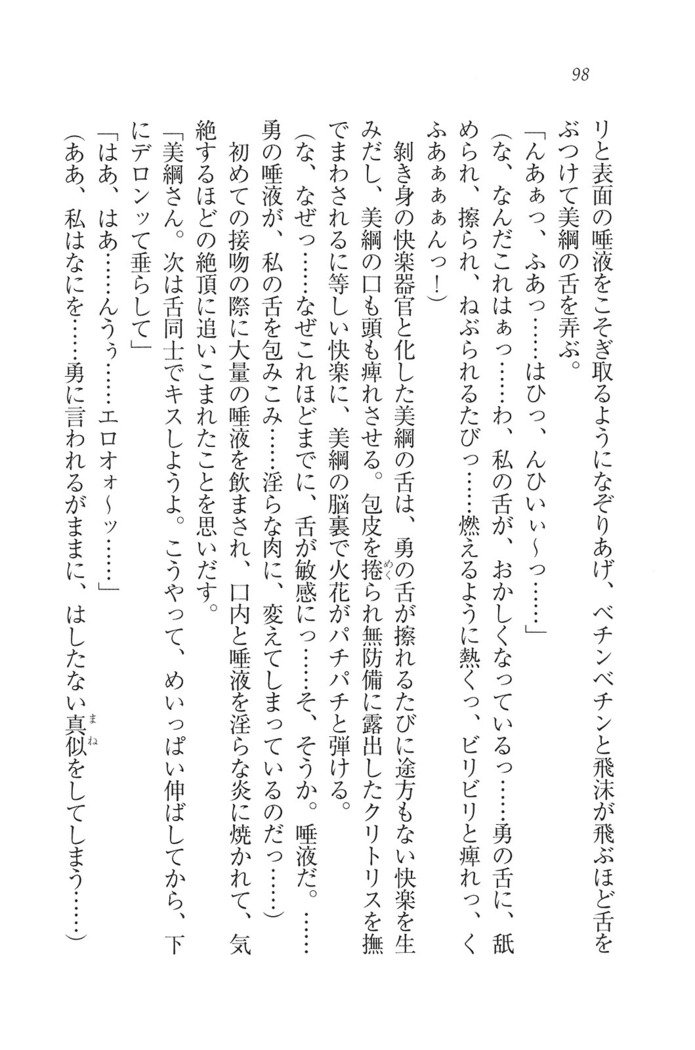 98
リと表面の唾液をこそぎ取るようになぞりあげ、ベチンベチンと飛沫が飛ぶほど舌を
ぶつけて美綱の舌を弄ぶ。
「んあぁっ、ふあっ……はひっ、んひいぃ～っ……」
(な、なんだこれはぁっ……わ、私の舌が、おかしくなっているっ……勇の舌に、舐
められ、擦られ、ねぶられるたびっ……燃えるように熱くっ、ビリビリと痺れっ、く
ふあぁぁぁんっ！)
剝き身の快楽器官と化した美綱の舌は、勇の舌が擦れるたびに途方もない快楽を生
みだし、美綱の口も頭も痺れさせる。包皮を捲られ無防備に露出したクリトリスを撫
めく
でまわされるに等しい快楽に、美綱の脳裏で火花がパチパチと弾ける。
(な、なぜっ……なぜこれほどまでに、舌が敏感にっ……そ、そうか。唾液だ。……
勇の唾液が、私の舌を包みこみ……淫らな肉に、変えてしまっているのだっ……)
初めての接吻の際に大量の唾液を飲まされ、口内と唾液を淫らな炎に焼かれて、気
絶するほどの絶頂に追いこまれたことを思いだす。
「美綱さん。次は舌同士でキスしようよ。こうやって、めいっぱい伸ばしてから、下
にデロンッて垂らして」
「はあ、はあ……んうぅ……エロオォ～ッ……」
(ああ、私はなにを……勇に言われるがままに、はしたない真似をしてしまう……)
まね